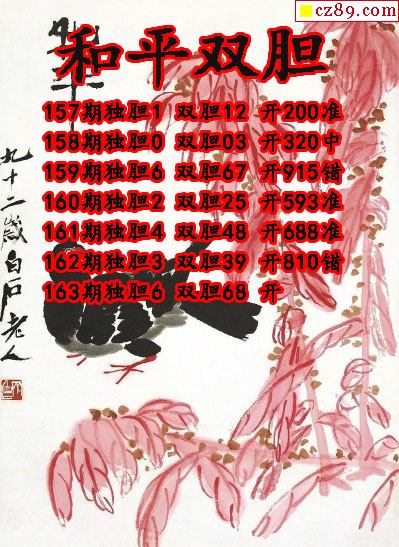 cz89.com
和平双胆
157期独胆1 双胆12 开200准
158期独胆0 双胆03 开320中
159期独胆6 双胆67 开915错
160期独胆2 双胆25 开593准
161期独胆4 双胆48 开688准
162期独胆3 双胆39 开810错
163期独胆6 双胆68 开
九十二岁白石老人